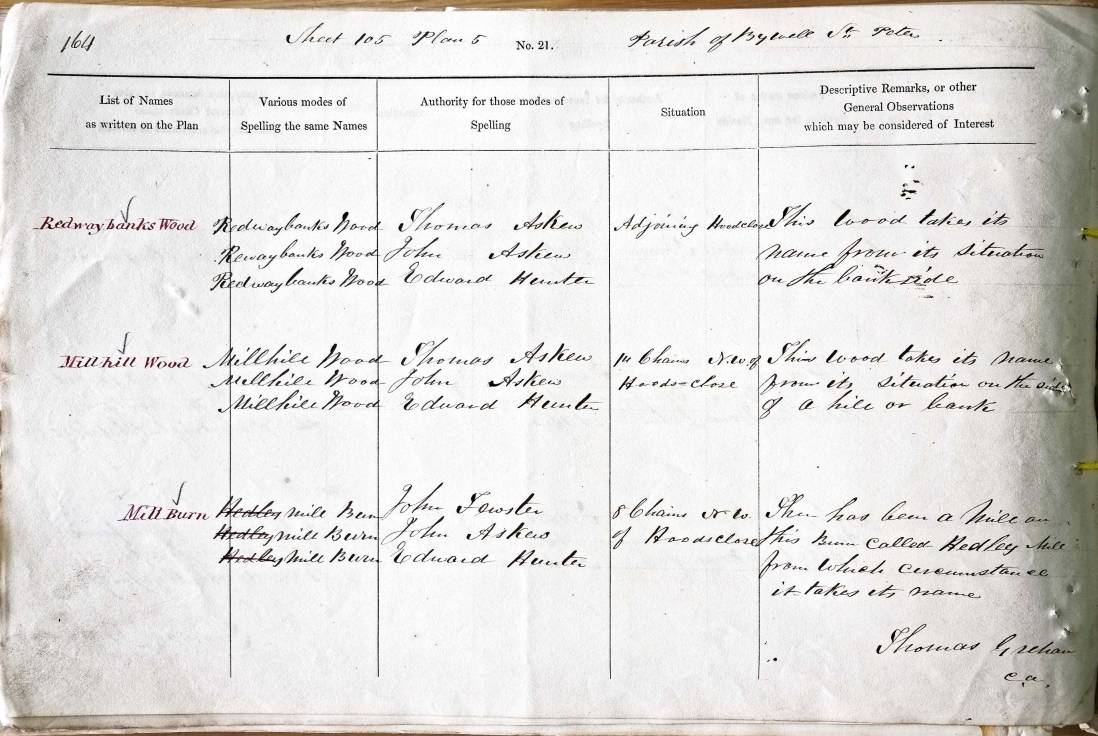 164
Sheet 105 Plan 5 No. 21. Parish of Bywell St. Peter
List of Names as written on the Plan
Various modes of Spelling the same Names
Authority for those modes of Spelling
Situation
Descriptive Remarks, or other General Observations which may be considered of Interest
Redwaybanks Wood Redwaybanks Wood Thomas Askew Adjoining Hoodsclose This wood takes its
Rewaybanks Wood John Askew name from its situation
Redwaybanks Wood Edward Hunter on the bank side
Millhill Wood Millhill Wood Thomas Askew 14 Chains N.W. of This wood takes its name
Millhill Wood John Askew Hoods-close from its situation on the side
Millhill Wood Edward Hunter of a hill or bank
Mill Burn Hedley mill Burn John Fewster 8 Chains N.W. Ther has been a Mill on
Hedley mill Burn John Askew of Hoodsclose this Burn called Hedley Mill
Hedley mill Burn Edward Hunter from which circumstance
it takes its name
Thomas
c.a.